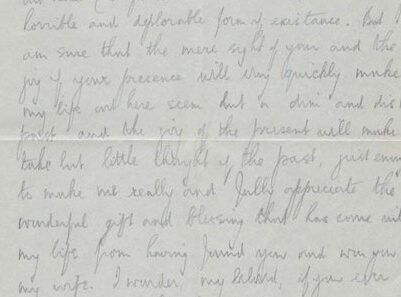 horrible and deplorable form of existance. But I
am sure that the mere sight of you and the
joy of your presence will very quickly make
my life out here seem but a dim and dis
past and the joy of the present will make
take but little thought of the past, just enou
to make me really and fully appreciate the
wonderful gift and blessing that has come int
my life from having found you and won you
my wife. I wonder, my beloved, if you ever